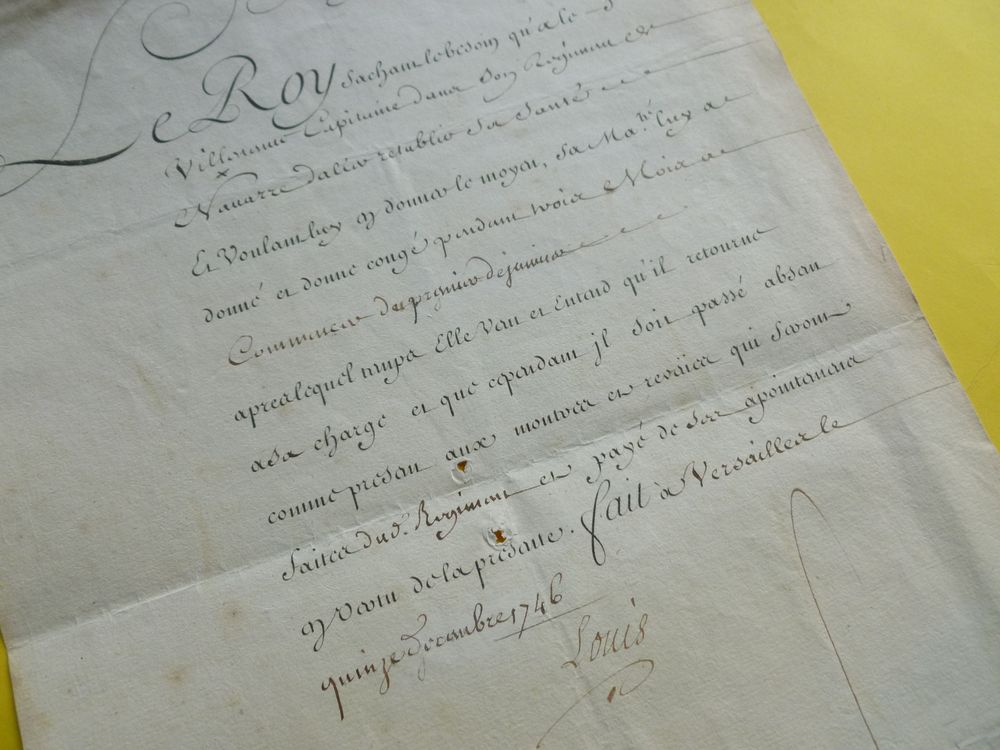 Le Roy sachant le besoin qu'a le S
Villoranne Capitaine dans son Regiment de
Navarre d'aller retablir sa santé
Et Voulant luy en donner le moyen, sa Ma.té luy a
donné et donne congé pendant trois Mois a
Commencer du premier de janvier
apres lequel temps Elle Veut et Entend qu'il retourne
a sa charge et que cependant jl soit passé absent
comme présent aux montres et reveües qui seront
faites dud. Regiment et payé de ses apointemens
en vertu de la présente. fait a Versailles le
quinze Decembre 1746
Louis